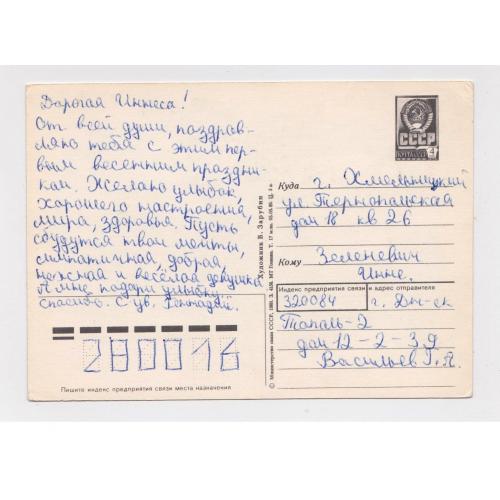 Дорогая Иннеса!
От всей души, поздрав-
ляю тебя с этим пер-
вым весенним праздни-
ком. Желаю улыбок,
хорошего настроения,
мира, здоровья. Пусть
сбудутся твои мечты,
симпатичная, добрая,
нежная и весёлая девушка
А мне подари улыбку.
Спасибо. С ув. Геннадий.
280016
Пишите индекс предприятия связи места назначения
Художник В. Зарубин
© Министерство связи СССР, 1980.
СССР
ПОЧТА
4
Куда г. Хмельницкий
ул. Тернопольская
дом 18 кв 26
Кому Зеленевич
Инне.
Индекс предприятия связи и адрес отправителя
320084 г. Дн-ск
Тополь-2
дом 12-2-39
Васильев Г. А.